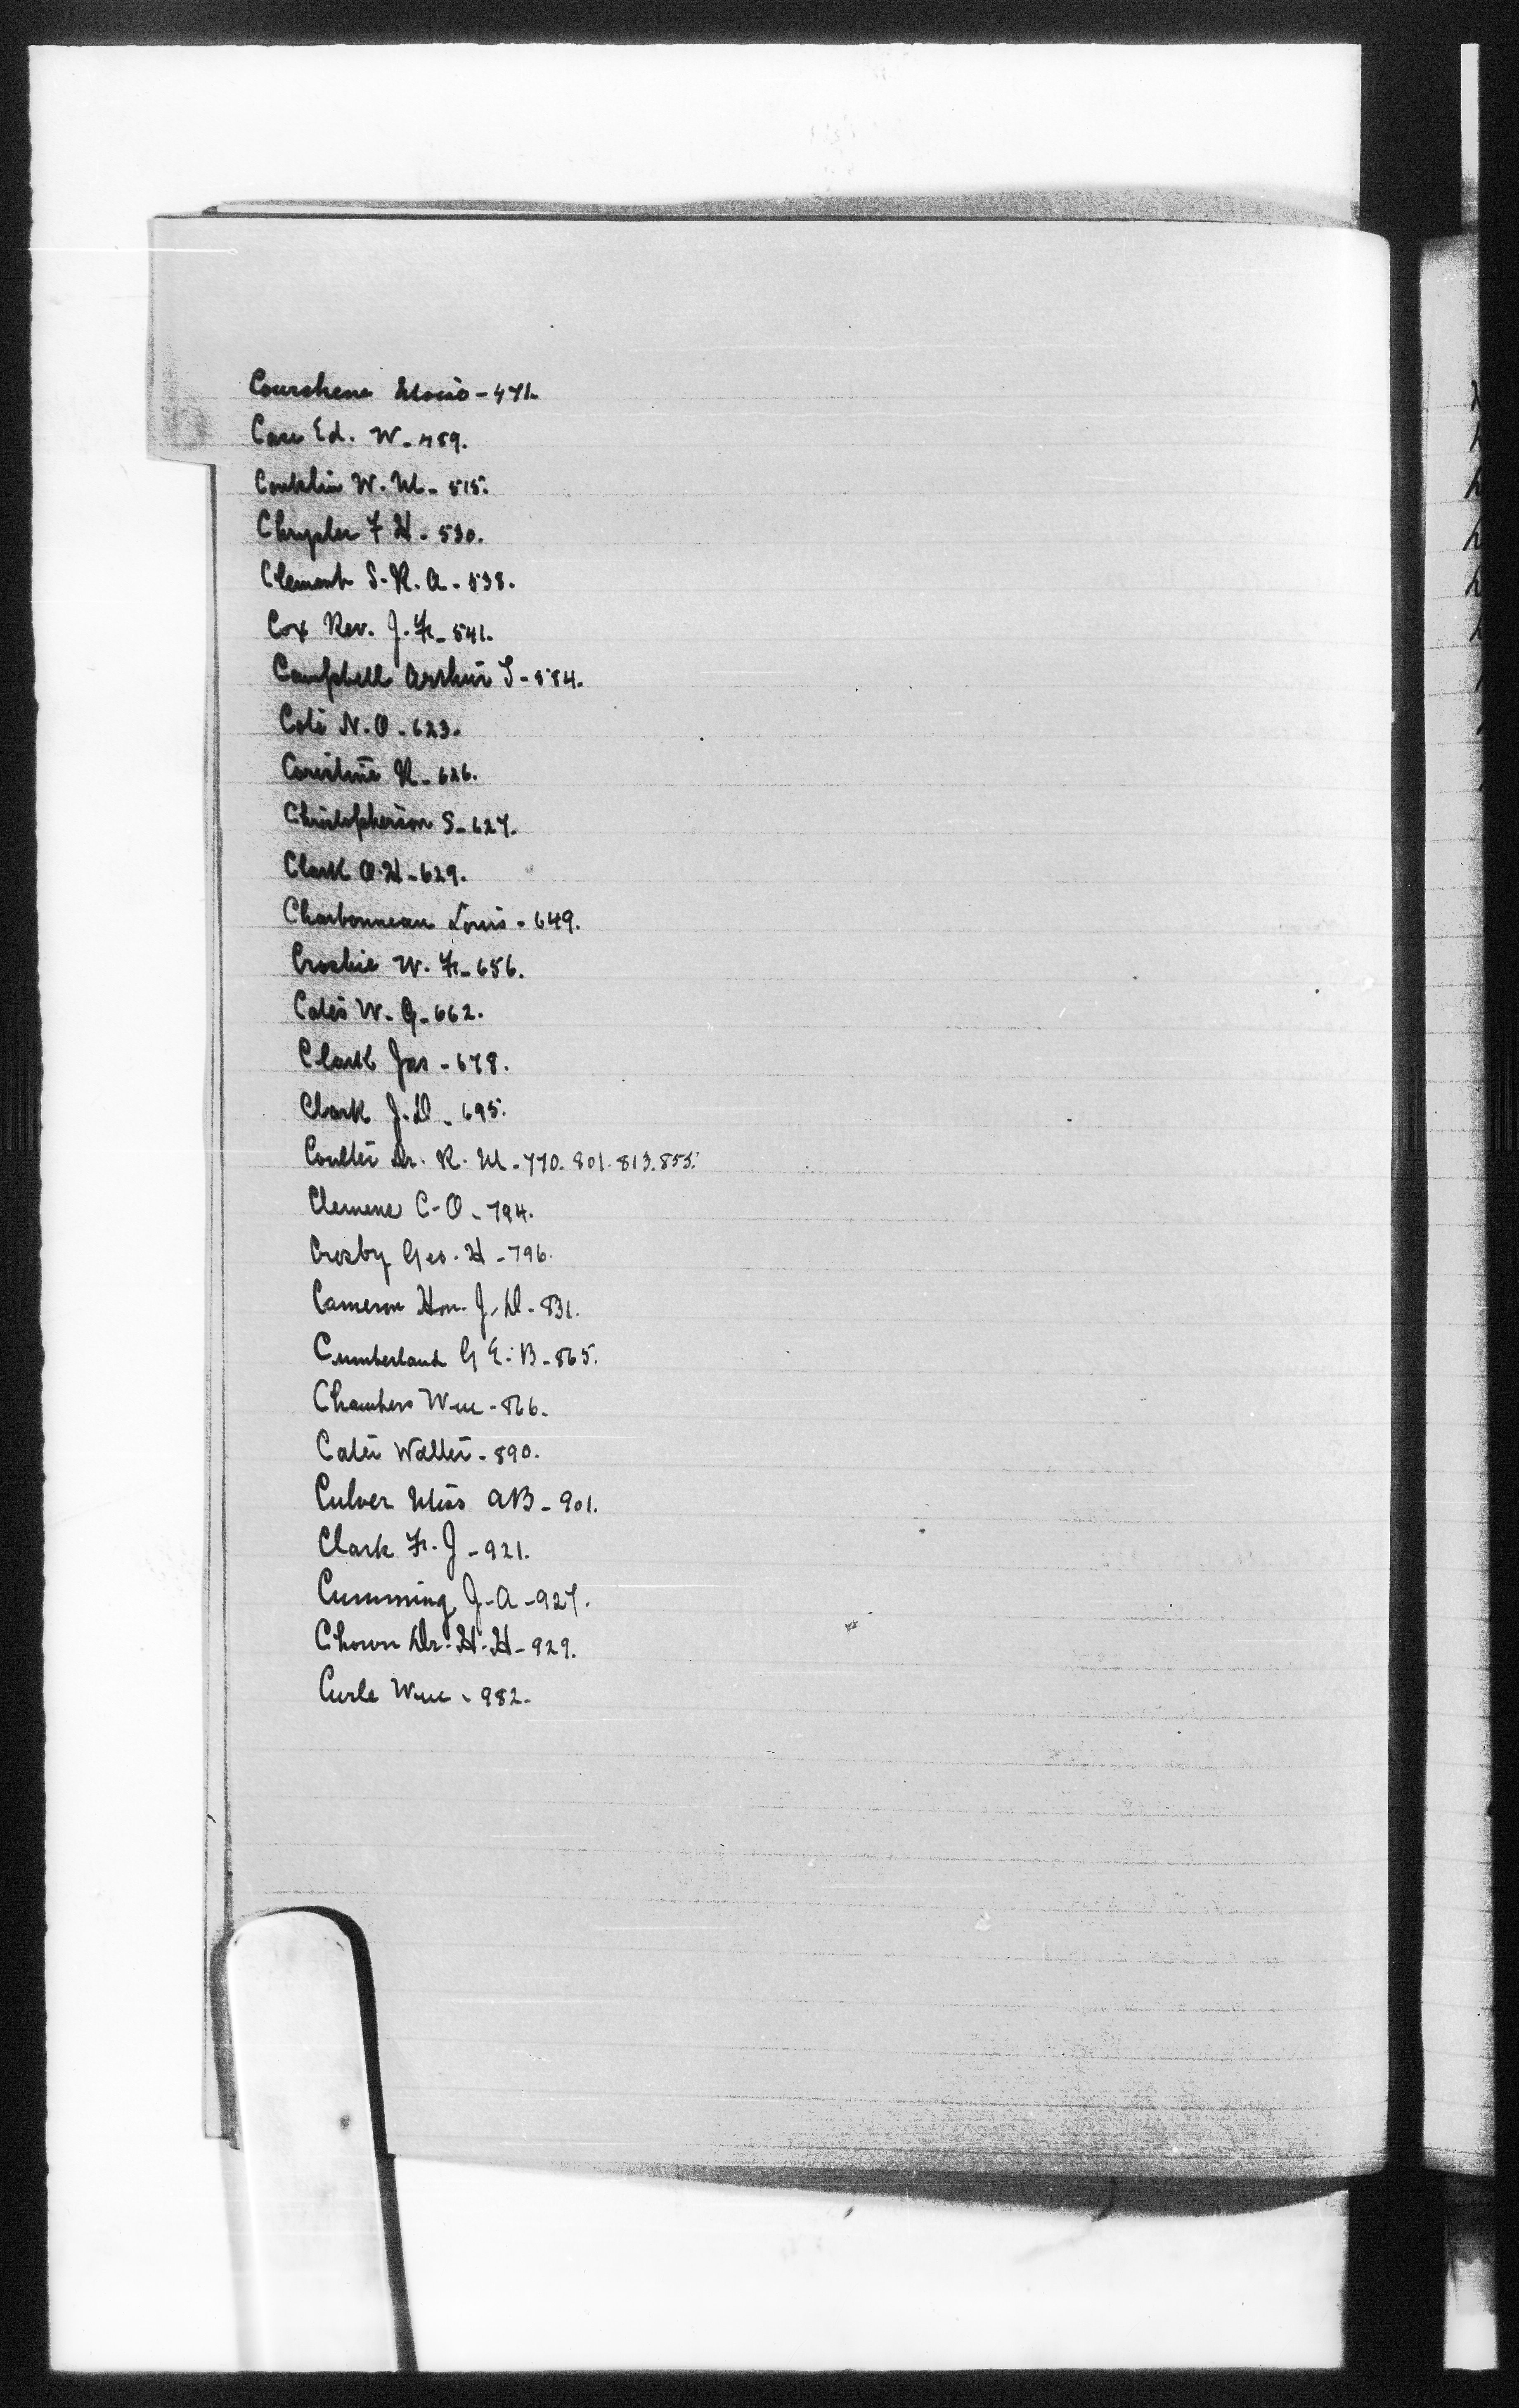 Courchene - 471.
Case Ed. W. 489.
Conklin W. M. - 515.
Chrysler F H - 530.
Clement S. R. A. - 538.
Cox Rev. J. F. - 541.
Campbell Arthur S - 584.
Cote N. O. - 623.
Coristine R. - 626.
Christopherson S - 627.
Clark O. H - 629.
Charbonneau Louis - 649.
Crosbie W. F. - 656.
Cates W. G - 662.
Clark Jas - 678.
Clark J. D. - 695.
Coulter Dr. R. M. - 770. 801. 813. 855.
Clemens C - O - 794.
Crosby Geo. H - 796.
Cameron Hon. J. D. - 831.
Cumberland G E. B - 865.
Chambers Wm - 866.
Cater Walter - 890.
Culver Miss AB - 901.
Clark F. J - 921.
Cumming J - A - 927.
Chown Dr. H. H - 929.
Curle Wm - 982.